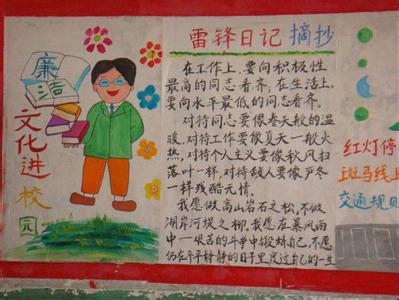 廉洁
文化进校园
雷锋日记 摘抄
在工作上,要向积极性
最高的同志看齐,在生活上,
要向水平最低的同志看齐。
对待同志要像春天般的温
暖,对待工作要像夏天一般火
热,对待个人主义要像秋风扫
落叶一样,对待敌人要像严冬
一样残酷无情。
我愿做高山岩石之松,不做
湖岸河坝之柳,我愿在暴风雨
中一艰苦的斗争中锻炼自己,不愿
在平平静静的日子里度过自己的一生
红灯停
斑马线上
交通规则